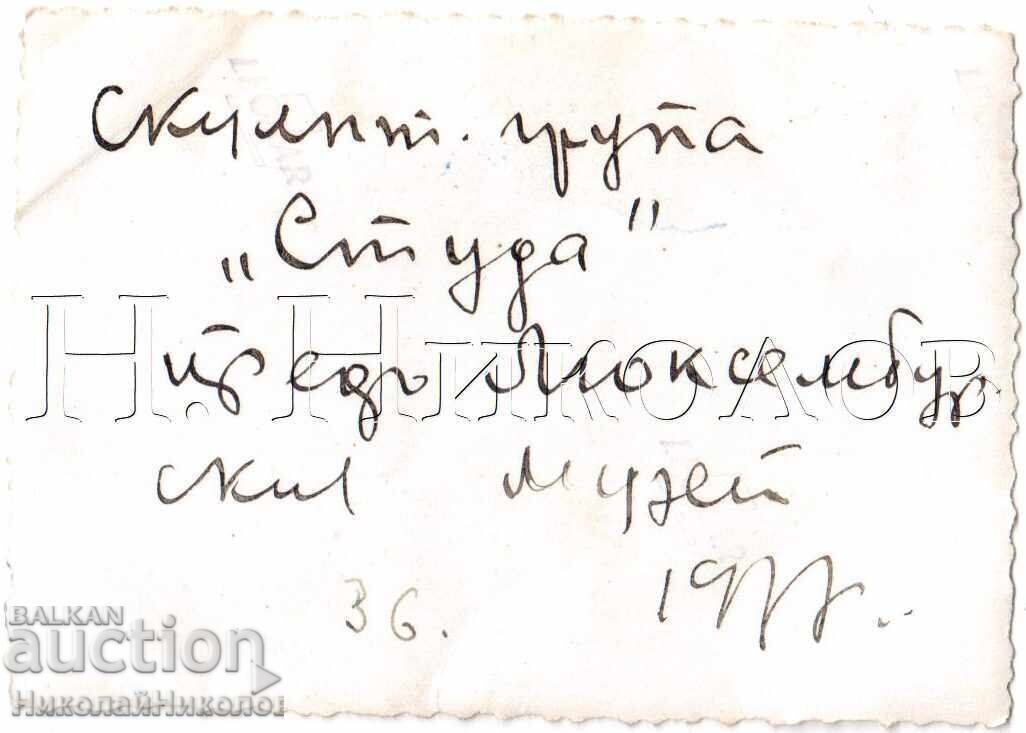 Скулпт. група
„Студа"
предъ Люксембур.
ския музей
36.
1977.
Н. Николов
BALKAN
auction
НиколайНиколов